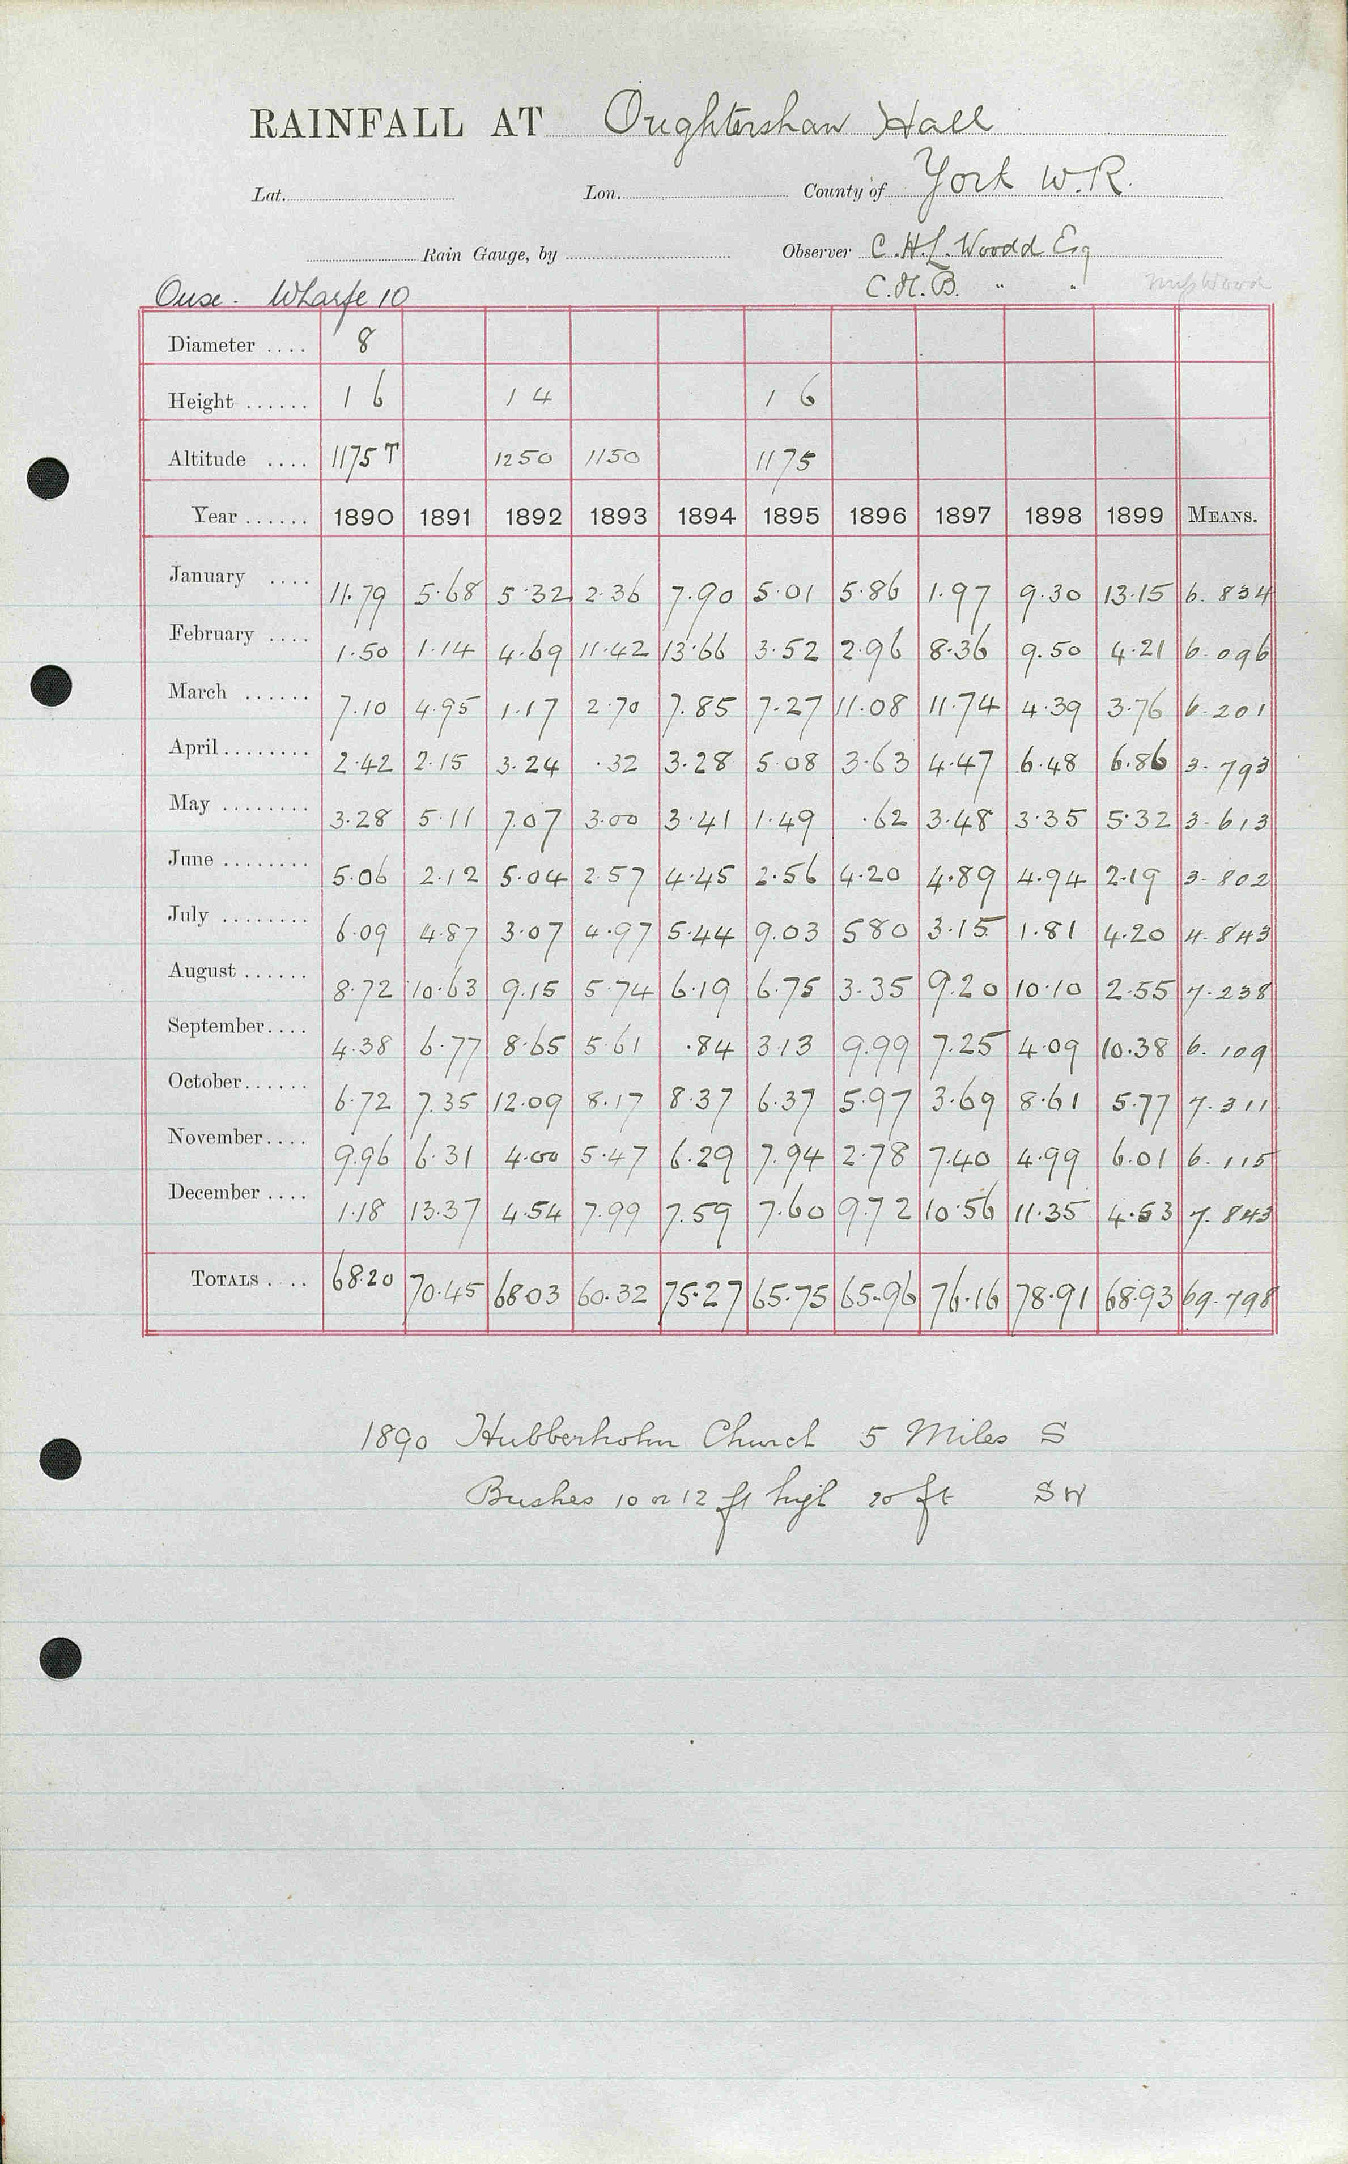 RAINFALL AT Oughtershaw Hall
Lat. Lon. County of York W.R.
Rain Gauge, by Observer C.H.L. Woodd Esq
Ouse. Wharfe 10 C.H.B. " "
Diameter .... 8
Height ...... 1 6 1 4 1 6
Altitude .... 1175 T 1250 1150 1175
Year ...... 1890 1891 1892 1893 1894 1895 1896 1897 1898 1899 MEANS.
January .... 11.79 5.68 5.32 2.36 7.90 5.01 5.86 1.97 9.30 13.15 6.834
February .... 1.50 1.14 4.69 11.42 13.66 3.52 2.96 8.36 9.50 4.21 6.096
March ...... 7.10 4.95 1.17 2.70 7.85 7.27 11.08 11.74 4.39 3.76 6.201
April ........ 2.42 2.15 3.24 .32 3.28 5.08 3.63 4.47 6.48 6.86 3.793
May ........ 3.28 5.11 7.07 3.00 3.41 1.49 .62 3.48 3.35 5.32 3.613
June ........ 5.06 2.12 5.04 2.57 4.45 2.56 4.20 4.89 4.94 2.19 3.802
July ........ 6.09 4.87 3.07 4.97 5.44 9.03 580 3.15 1.81 4.20 4.843
August ...... 8.72 10.63 9.15 5.74 6.19 6.75 3.35 9.20 10.10 2.55 7.238
September .... 4.38 6.77 8.65 5.61 .84 3.13 9.99 7.25 4.09 10.38 6.109
October ...... 6.72 7.35 12.09 8.17 8.37 6.37 5.97 3.69 8.61 5.77 7.311
November .... 9.96 6.31 4.00 5.47 6.29 7.94 2.78 7.40 4.99 6.01 6.115
December .... 1.18 13.37 4.54 7.99 7.59 7.60 9.72 10.56 11.35 4.53 7.843
TOTALS .... 68.20 70.45 68.03 60.32 75.27 65.75 65.96 76.16 78.91 68.93 69.798
1890 Hubberholm Church 5 Miles S
Bushes 10 or 12 ft high 20 ft SW